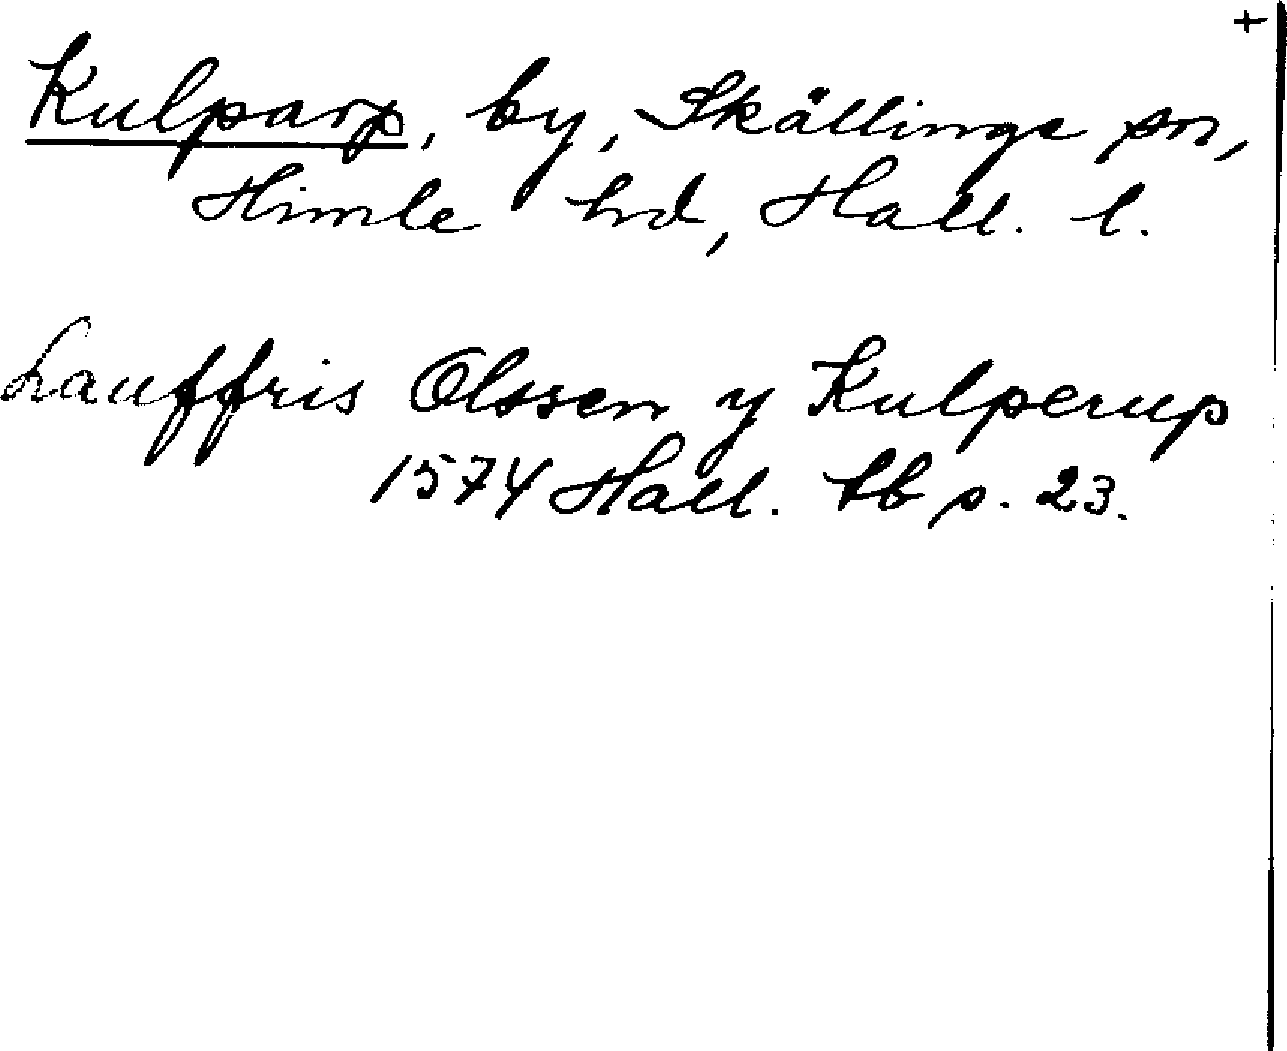 +
Kulparp, by, Skällinge sn,
Himle hd, Hall. l.
Lauffris Olssen y Kulperup
1574 Hall. lb s. 23.